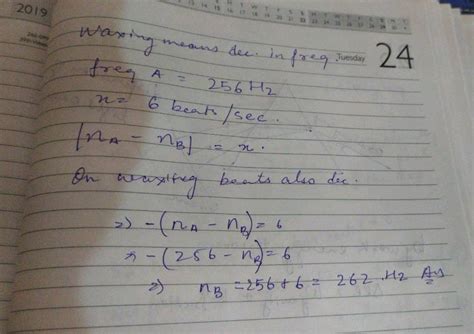 2019
Tuesday
24
Waxing means dec. in freq.
freq A = 256 Hz
x = 6 beats/sec.
|nA - nB| = x.
On waxing beats also dec.
=> -(nA - nB) = 6
=> -(256 - nB) = 6
=> nB = 256 + 6 = 262 Hz Ans